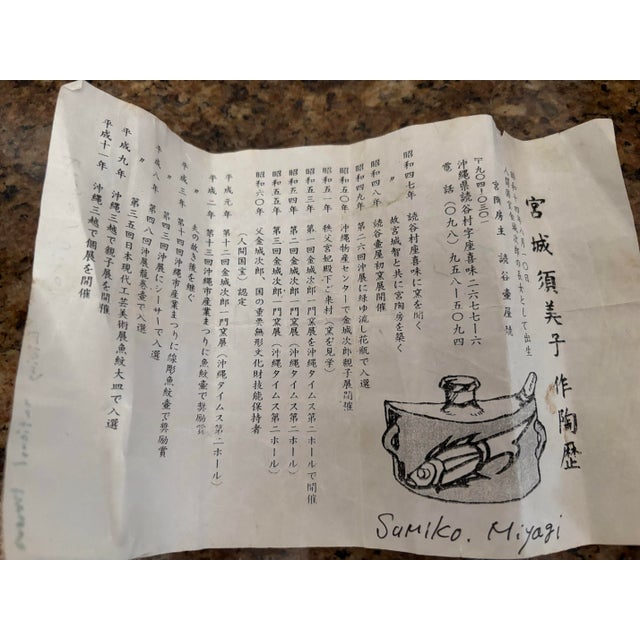 宮城須美子 作陶歴
人間国宝金城次郎の長女として出生
宮陶房主 読谷壷屋焼
〒九〇四-〇三〇一
沖縄県読谷村字座喜味二六七七-六
電話(〇九八)九五八-五〇九四
昭和四七年 読谷村座喜味に窯を開く
故宮城智と共に宮陶房を築く
昭和四八年 読谷壷屋初窯展開催
昭和四九年 第二六回沖展に緑ゆ流し花瓶で入選
昭和五〇年 沖縄物産センターで金城次郎親子展開催
昭和五一年 秩父宮妃殿下ご来村(窯を見学)
昭和五三年 第一回金城次郎一門窯展を沖縄タイムス第二ホールで開催
昭和五四年 第二回金城次郎一門窯展(沖縄タイムス第二ホール)
昭和五五年 第三回金城次郎一門窯展(沖縄タイムス第二ホール)
昭和六〇年 父金城次郎、国の重要無形文化財技能保持者
(人間国宝)認定
平成元年 第十一回金城次郎一門窯展(沖縄タイムス第二ホール)
平成二年 第十三回沖縄市産業まつりに魚紋壷で奨励賞
〃 夫の故き後を継ぐ
平成三年 第十四回沖縄市産業まつりに線彫魚紋壷で奨励賞
〃 第四三回沖展にシーサーで入選
平成八年 第四八回沖展龍巻壷で入選
平成九年 第三五回日本現代工芸美術展魚紋大皿で入選
〃 沖縄三越で親子展を開催
平成十一年 沖縄三越で個展を開催
Sumiko. Miyagi